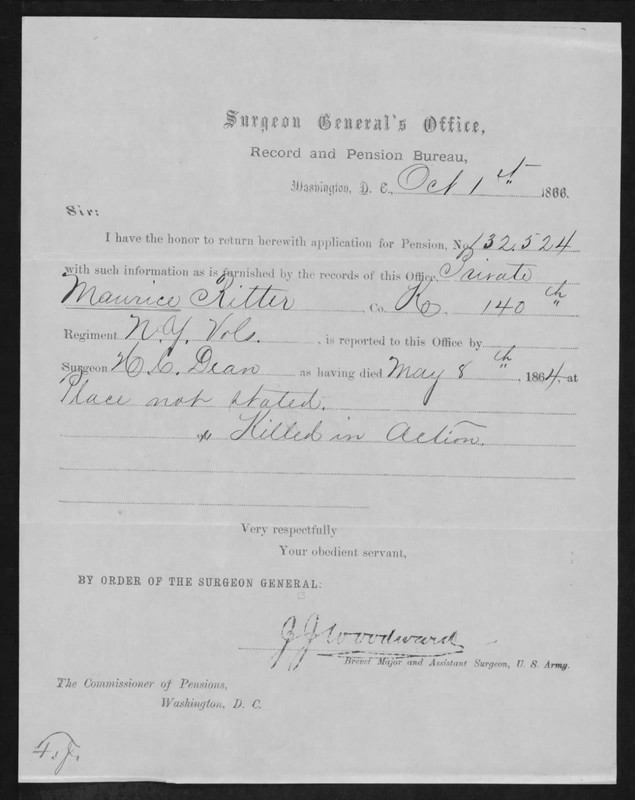 Surgeon General's Office,
Record and Pension Bureau,
Washington, D. C., Oct 1st 1866.
Sir:
I have the honor to return herewith application for Pension, No 132,524
with such information as is furnished by the records of this Office. Private
Maurice Ritter Co. K. 140th
Regiment N.Y. Vols. , is reported to this Office by
Surgeon H. C. Dean as having died May 8th , 1864, at
Place not stated.
Killed in action.
Very respectfully
Your obedient servant,
BY ORDER OF THE SURGEON GENERAL:
J J Woodward
Brevet Major and Assistant Surgeon, U. S. Army.
The Commissioner of Pensions,
Washington, D. C.